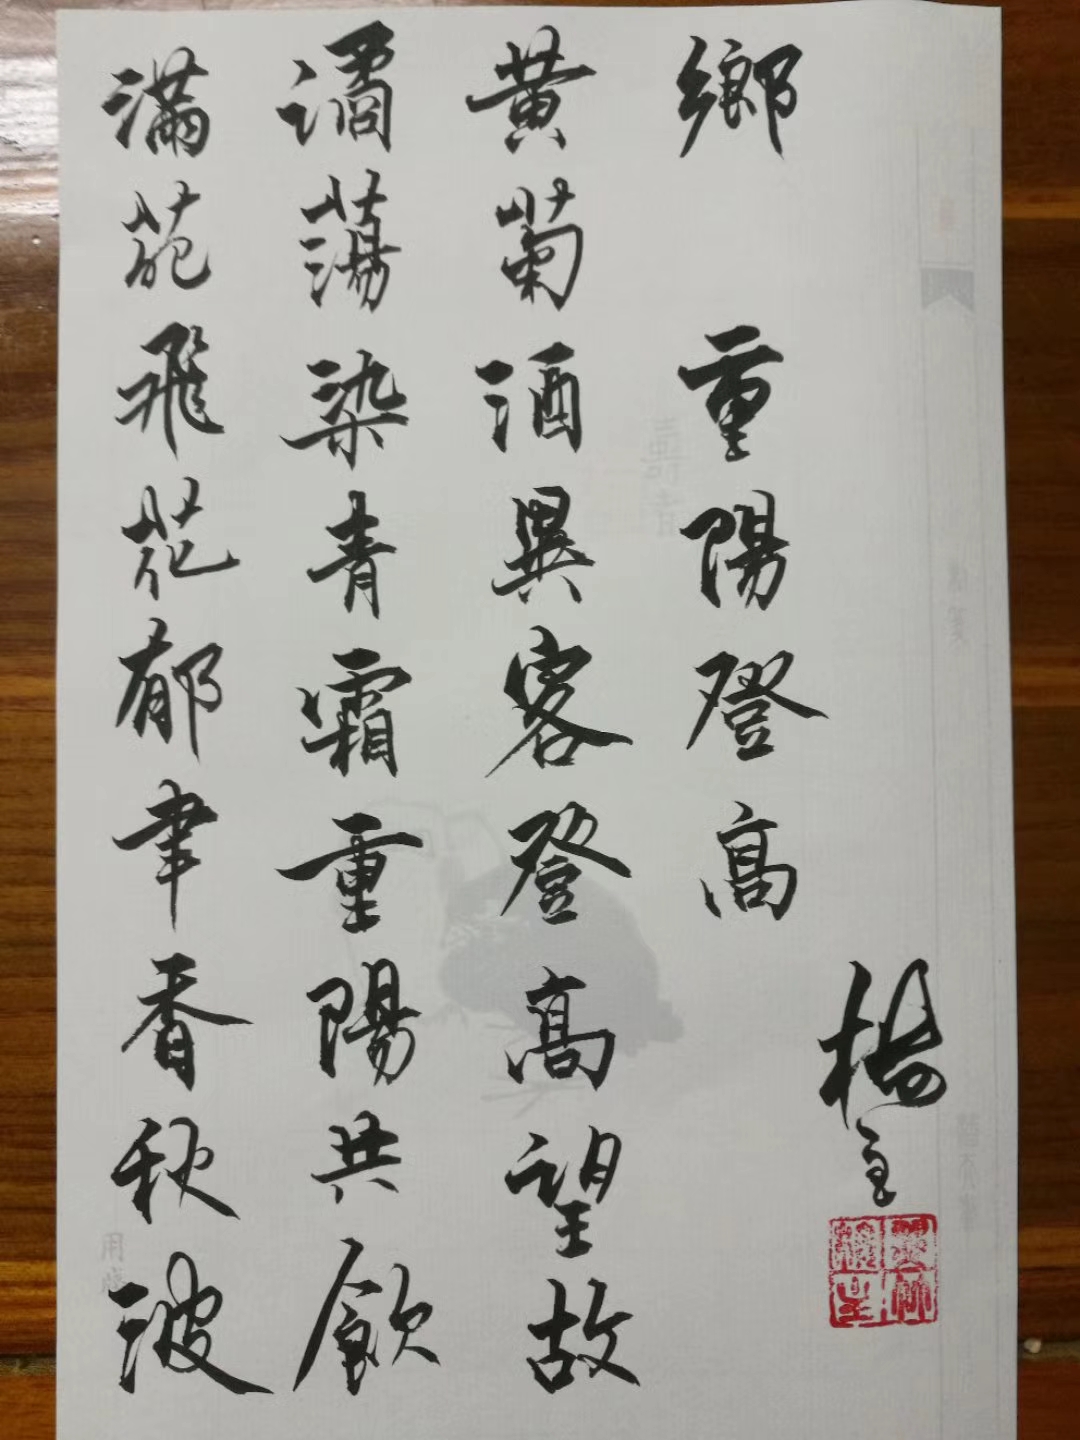 滿苑飛花郁聿香秋波
譎蕩染青霜重陽共飲
黄菊酒異客登高望故
鄉 重陽登高